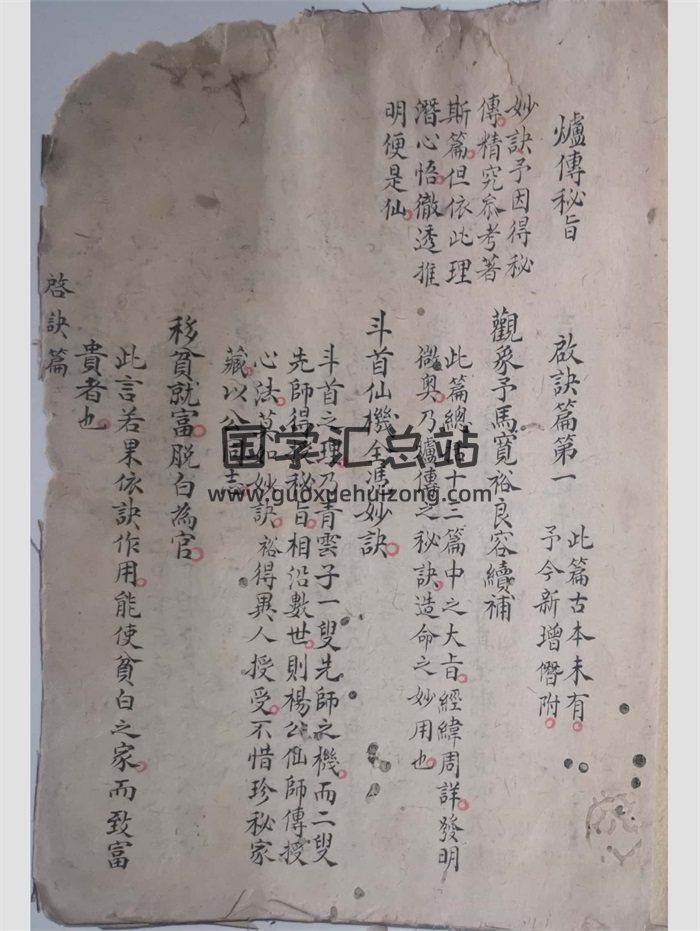 爐傳秘旨
妙訣予因得秘
傳精究叅考著
斯篇但依此理
潛心悟徹透推
明便是仙
啟訣篇第一
此篇古本未有
予今新增僭附
觀象予馬寬裕良容續補
此篇總括十三篇中之大旨經緯周詳發明
微奧乃爐傳之秘訣造命之妙用也
斗首仙機全馮妙訣
斗首之理乃青雲子一叟先師之機而二叟
先師得秘旨相沿數世則楊公仙師傳授
心法莫如妙訣裕得異人授受不惜珍秘家
藏以公同志
移貧就富脫白為官
此言若果依訣作用能使貧白之家而致富
貴者也
啓訣篇
国学汇总站
www.guoxuehuizong.com